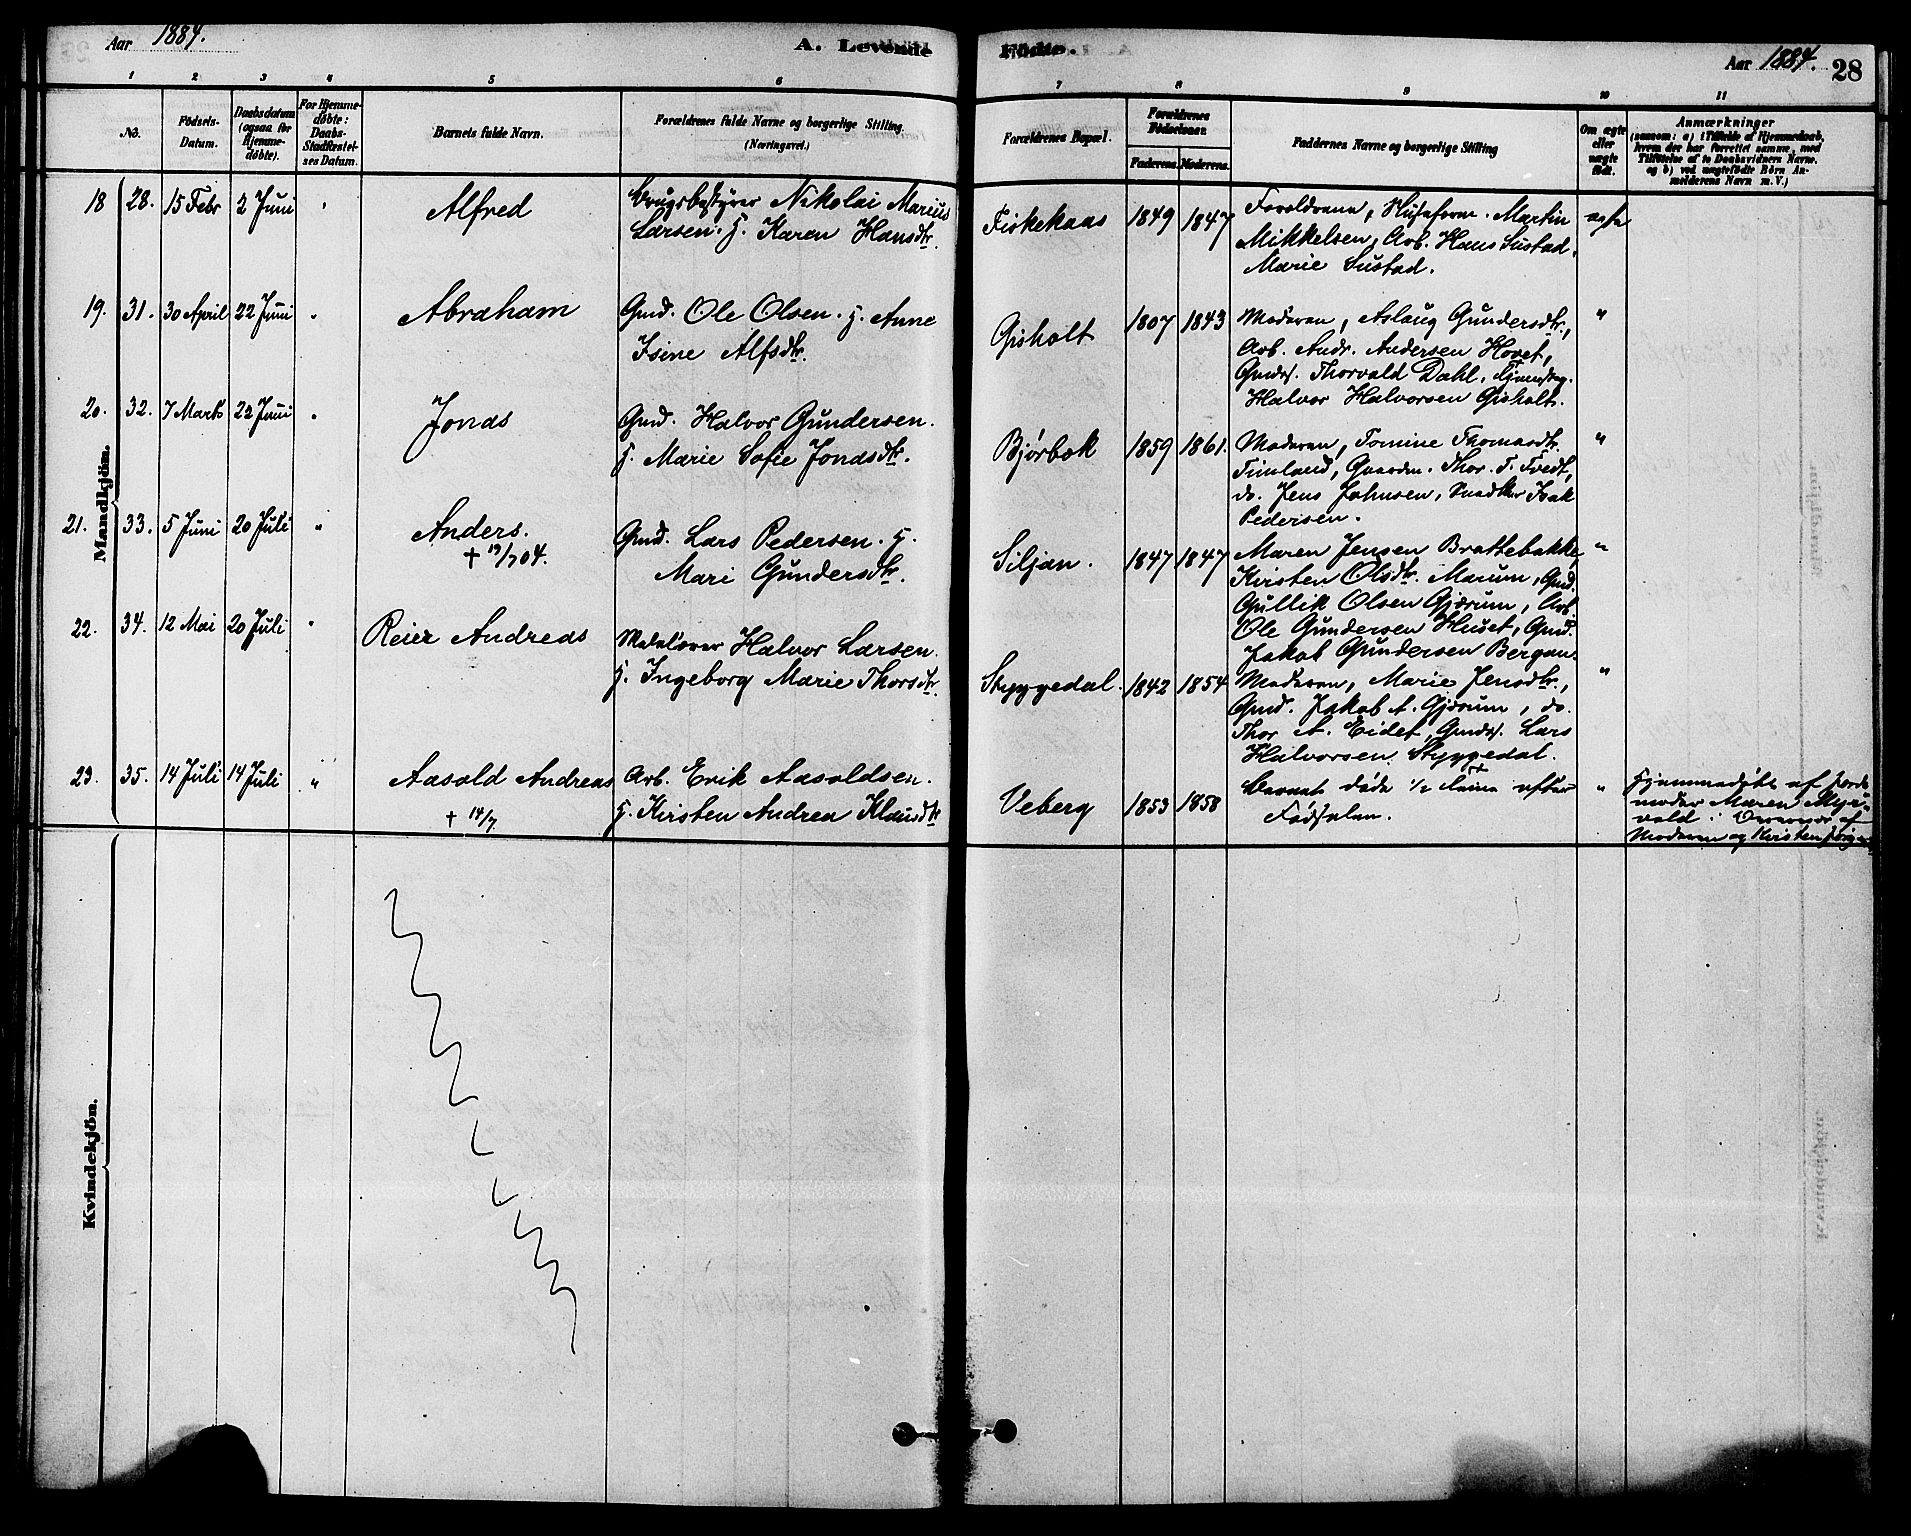 Aar 1884.
A. Levende Fødte.
Aar 1884. 28
1 2 3 4 5 6 7 8 9 10 11
No.
Fødsels-
Datum.
Daabsdatum
(ogsaa for
Hjemme-
døbte).
For Hjemme-
døbte:
Daabs-
Stadfæstel-
ses Datum.
Barnets fulde Navn.
Forældrenes fulde Navne og borgerlige Stilling.
(Næringsvei.)
Forældrenes Bopæl.
Forældrenes
Fødselsaar.
Faderens. Moderens.
Faddernes Navne og borgerlige Stilling
Om ægte
eller
uægte
født.
Anmærkninger
(saasom: a) i Tilfælde af Hjemmedaab,
hvem der har forrettet samme, med
Tilføielse af to Daabsvidners Navne.
og b) ved uægtefødte Børn An-
melderens Navn m. V.)
Mandkjön.
18 28. 15 Febr 2 Juni " Alfred
Brugsbestyrer Nikolai Marius
Larsen. H. Karen Hansdtr.
Fiskekaas 1849 1847
Forældrene, Husform. Martin
Mikkelsen, Arb. Hans Sustad,
Marie Sustad.
ægte
19. 31. 30 April 22 Juni " Abraham
Gmd. Ole Olsen. H. Anne
Isine Alfsdtr.
Gisholt 1807 1843
Moderen, Aslaug Gundersdtr.,
Arb. Andr. Andersen Hovet,
Gmds. Thorvald Dahl,
Halvor Halvorsen Gisholt.
"
20. 32. 7 Marts 22 Juni " Jonas
Gmd. Halvor Gundersen.
H. Marie Sofie Jonasdtr.
Bjørbæk 1859 1861.
Moderen, Tomine Thomasdtr.
Timland, Gaardm. Thor. T. Tvedt,
do. Jens Johnsen, Snedker Isak
Pedersen.
"
21. 33. 5 Juni 20 Juli " Anders.
† 19/7 04.
Gmd. Lars Pedersen. H.
Mari Gundersdtr.
Siljan. 1847 1847
Maren Jensen Brattebakke,
Kirsten Olsdtr. Marum, Gmd.
Gullik Olsen Gjærum, Arb.
Ole Gundersen Huset, Gmd.
Jakob Gundersen Bergan.
"
22. 34. 12 Mai 20 Juli " Reier Andreas
Halvor Larsen.
H. Ingeborg Marie Thorsdtr.
Styggedal. 1842 1854
Moderen, Marie Jensdtr.,
Gmd. Jakob A. Gjærum, do.
Thor A. Eidet, Gmds. Lars
Halvorsen Styggedal.
"
23. 35. 14 Juli 14 Juli " Aasold Andreas
† 14/7.
Arb. Erik Aasoldsen.
H. Kirsten Andrea Klausdtr
Veberg 1853 1858
Barnet døde 1/2 Time efter
Fødselen.
"
Hjemmedøbt af Jorde-
moder Maren Myr-
vold i Overvær af
Moderen og Kirsten
Kvindekjön.